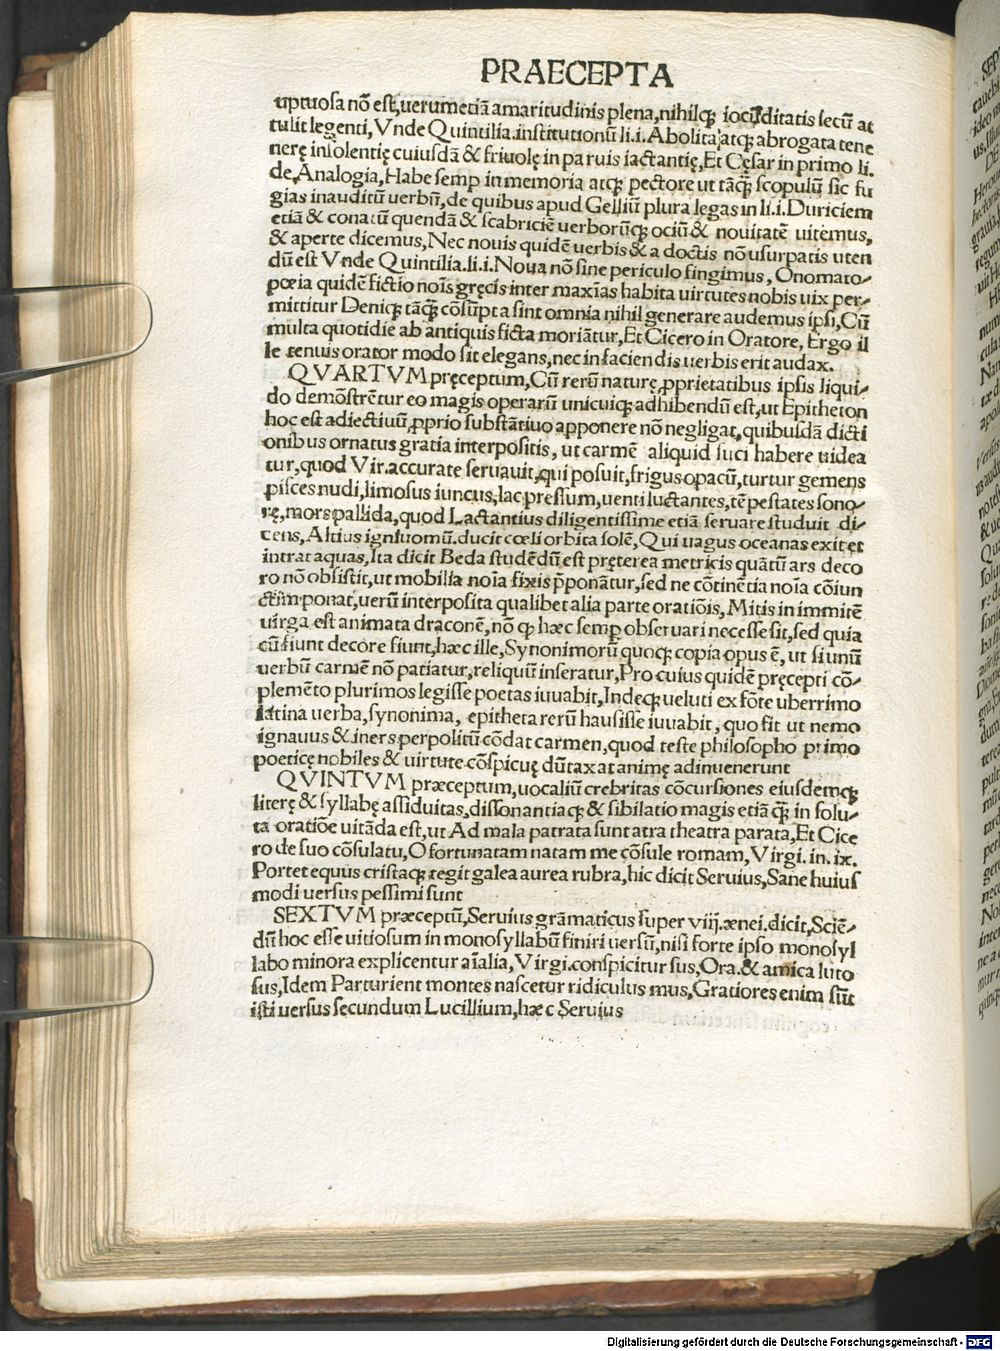 PRAECEPTA
uptuosa nõ est,uerumetiã amaritudinis plena,nihilqꝫ iocūditatis secū at
tulit legenti,Vnde Quintilia.institutionū li.i.Abolita atqꝫ abrogata tene
nerę insolentię cuiusdã & friuolę in paruis iactantię,Et Cęsar in primo li.
de Analogia,Habe semp in memoria atqꝫ pectore ut tãqꝫ̃ scopulū sic fu
gias inauditū uerbū,de quibus apud Gelliū plura legas in li.i.Duriciem
etiã & conatū quendã & scabriciẽ uerborūqꝫ ociū & nouitatẽ uitemus,
& aperte dicemus,Nec nouis quidẽ uerbis & a doctis nõ usurpatis uten
dū est Vnde Quintilia.li.i.Noua nõ sine periculo fingimus,Onomato-
pœia quidẽ fictio noĩs gręcis inter maxĩas habita uirtutes nobis uix per-
mittitur Deniqꝫ tãqꝫ̃ cõsūpta sint omnia nihil generare audemus ipsi,Cū
multa quotidie ab antiquis ficta moriãtur,Et Cicero in Oratore, Ergo il
le tenuis orator modo sit elegans,nec in faciendis uerbis erit audax.
QVARTVM pręceptum,Cū rerū naturę ꝓprietatibus ipsis liqui-
do demõstrẽtur eo magis operarū unicuiqꝫ adhibendū est,ut Epitheton
hoc est adiectiuū,ꝓprio substãtiuo apponere nõ negligat,quibusdã dicti
onibus ornatus gratia interpositis, ut carmẽ aliquid suci habere uidea
tur,quod Vir.accurate seruauit,qui posuit,frigus opacū,turtur gemens
pisces nudi,limosus iuncus,lac pressum,uenti luctantes,tẽpestates sono-
rę,mors pallida,quod Lactantius diligentissime etiã seruare studuit di-
cens,Altius ignĩuomū.ducit cœli orbita solẽ,Qui uagus oceanas exit et
intrat aquas,Ita dicit Beda studẽdū est pręterea metricis quãtū ars deco
ro nõ obsistit,ut mobilia noĩa fixis p̃ponãtur,sed ne cõtinẽtia noĩa cõiun
ctim ponat,uerū interposita qualibet alia parte oratiõis,Mitis in immitẽ
uirga est animata draconẽ,nõ ꝙ hæc semp obseruari necesse sit,sed quia
cū fiunt decore fiunt,hæc ille,Synonimorū quoqꝫ copia opus ẽ, ut si unū
uerbū carmẽ nõ patiatur,reliquū inseratur,Pro cuius quidẽ pręcepti cõ-
plemẽto plurimos legisse poetas iuuabit,Indeqꝫ ueluti ex fõte uberrimo
latina uerba,synonima, epitheta rerū hausisse iuuabit, quo fit ut nemo
ignauus & iners perpolitū cõdat carmen,quod teste philosopho primo
poeticę nobiles & uirtute cõspicuę dūtaxat animę adinuenerunt
QVINTVM præceptum,uocaliū crebritas cõcursiones eiusdemqꝫ
literę & syllabę assiduitas,dissonantiaqꝫ & sibilatio magis etiã qꝫ̃ in solu-
ta oratiõe uitãda est,ut Ad mala patrata sunt atra theatra parata,Et Cice
ro de suo cõsulatu,O fortunatam natam me cõsule romam,Virgi. in. ix.
Portet equus cristaqꝫ tegit galea aurea rubra,hic dicit Seruius,Sane huius
modi uersus pessimi sunt
SEXTVM præceptū,Seruius grãmaticus super viij.ænei.dicit,Sciẽ-
dū hoc esse uitiosum in monosyllabū finiri uersū,nisi forte ipso monosyl
labo minora explicentur aĩalia,Virgi.conspicitur sus,Ora.& amica luto
sus,Idem Parturient montes nascetur ridiculus mus,Gratiores enim sūt
isti uersus secundum Lucillium,hæc Seruius
Digitalisierung gefördert durch die Deutsche Forschungsgemeinschaft - DFG